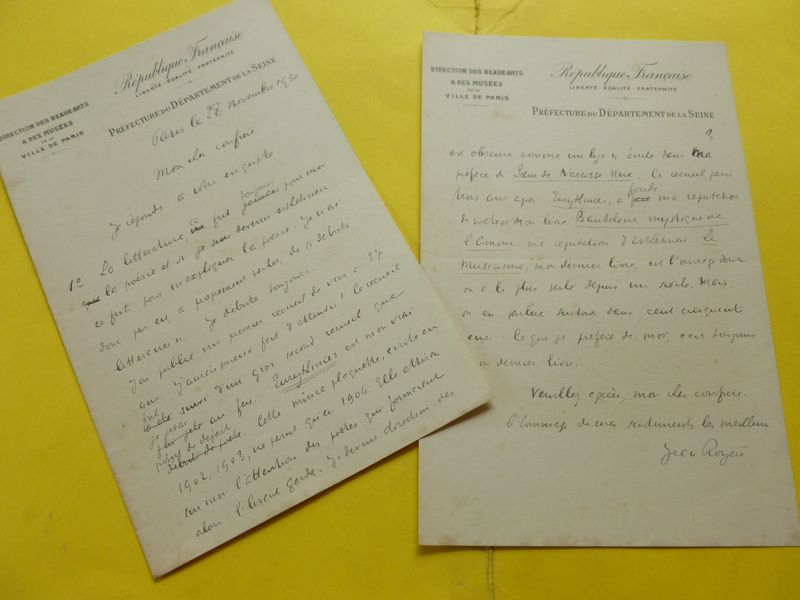 République Française
LIBERTÉ · ÉGALITÉ · FRATERNITÉ
DIRECTION DES BEAUX-ARTS
& DES MUSÉES
DE LA
VILLE DE PARIS
PRÉFECTURE DU DÉPARTEMENT DE LA SEINE
Paris le 28 novembre 1930
Mon cher confrère
Je réponds à votre enquête
1° La littérature, ce fut toujours pour moi
la poésie et si je devins esthéticien
ce fut pour m'expliquer la poésie. Je n'ai
donc pas eu, à proprement parler, de « débuts
littéraires ». Je débute toujours.
J'ai publié un premier recueil de vers à 27
ans. J'aurais mieux fait d'attendre! Ce recueil
fut suivi d'un gros second recueil que
je jetai au feu. Eurythmies est mon vrai
point de départ. Cette mince plaquette, écrite en
1902, 1903, ne parut qu'en 1904. Elle attira
sur moi l'attention des poètes qui formaient
alors l'avant garde. Je devins directeur des
République Française
LIBERTÉ · ÉGALITÉ · FRATERNITÉ
DIRECTION DES BEAUX-ARTS
& DES MUSÉES
DE LA
VILLE DE PARIS
PRÉFECTURE DU DÉPARTEMENT DE LA SEINE
3
est obscure comme un lys » écrite dans ma
préface de Sœur de Narcisse Nue. Ce recueil paru
trois ans après Eurythmies, a fondé ma réputation
de poète et mon livre Baudelaire mystique de
l'Amour ma réputation d'esthéticien. Le
Musicisme, mon dernier livre, est l'ouvrage dont
on a le plus parlé depuis un siècle. Mais
on en parlera surtout dans cent cinquante
ans. Ce que je préfère de moi, c'est toujours
mon dernier livre.
Veuillez agréer, mon cher confrère
l'hommage de mes sentiments les meilleurs
Jean Royère